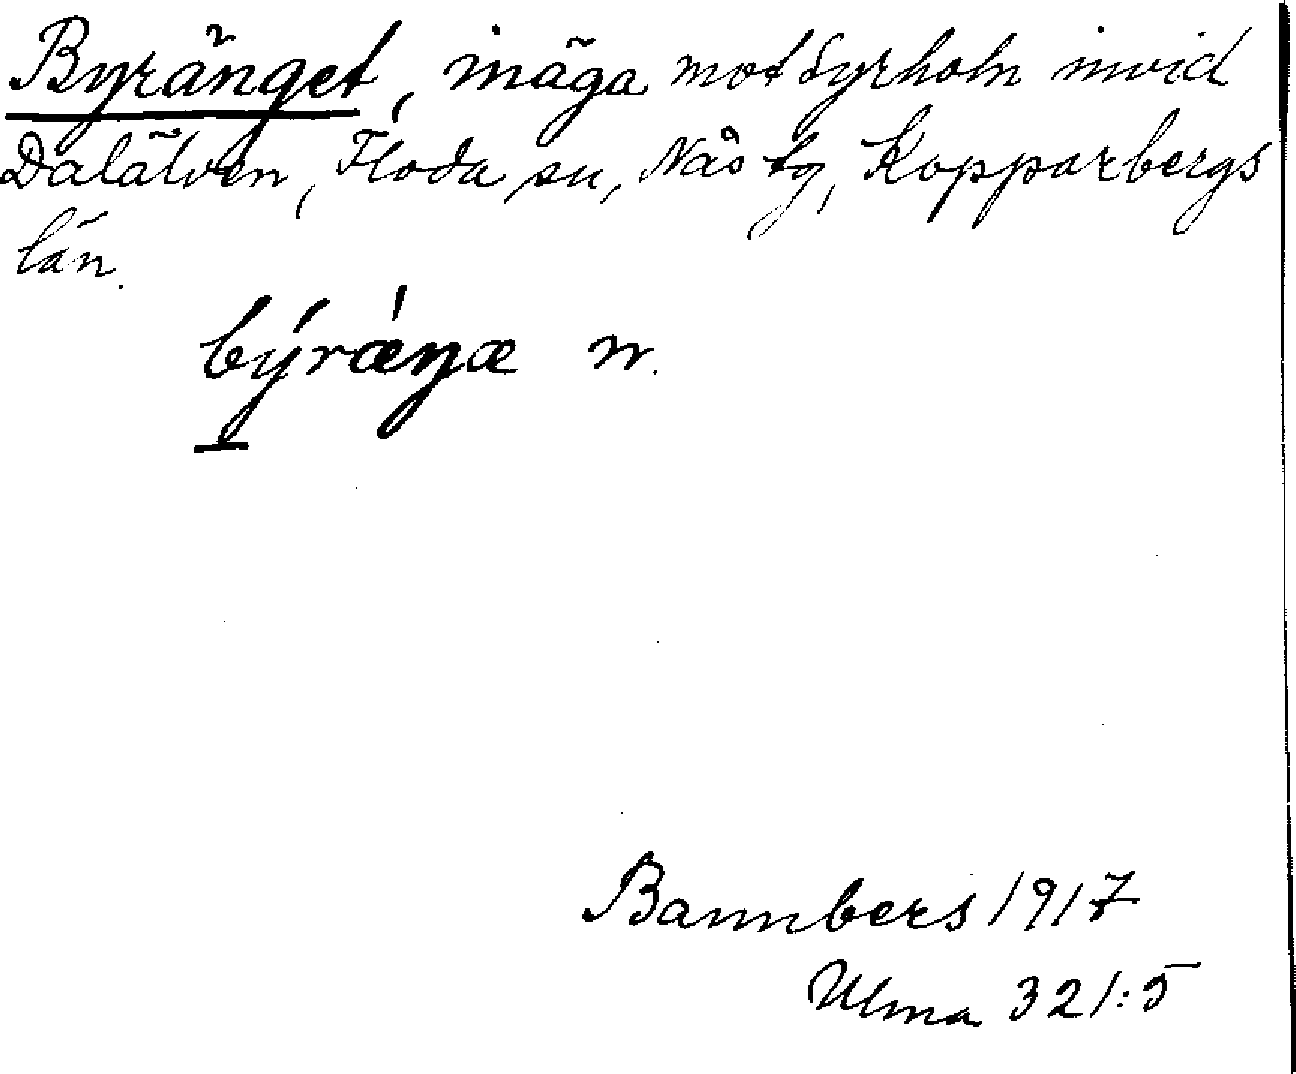 Byränget, inäga mot Syrholn invid
Dalälven, Floda sn, Nås tg, Kopparbergs
län.
býrǽŋæ n.
Bannbers 1917
Ulma 321:5